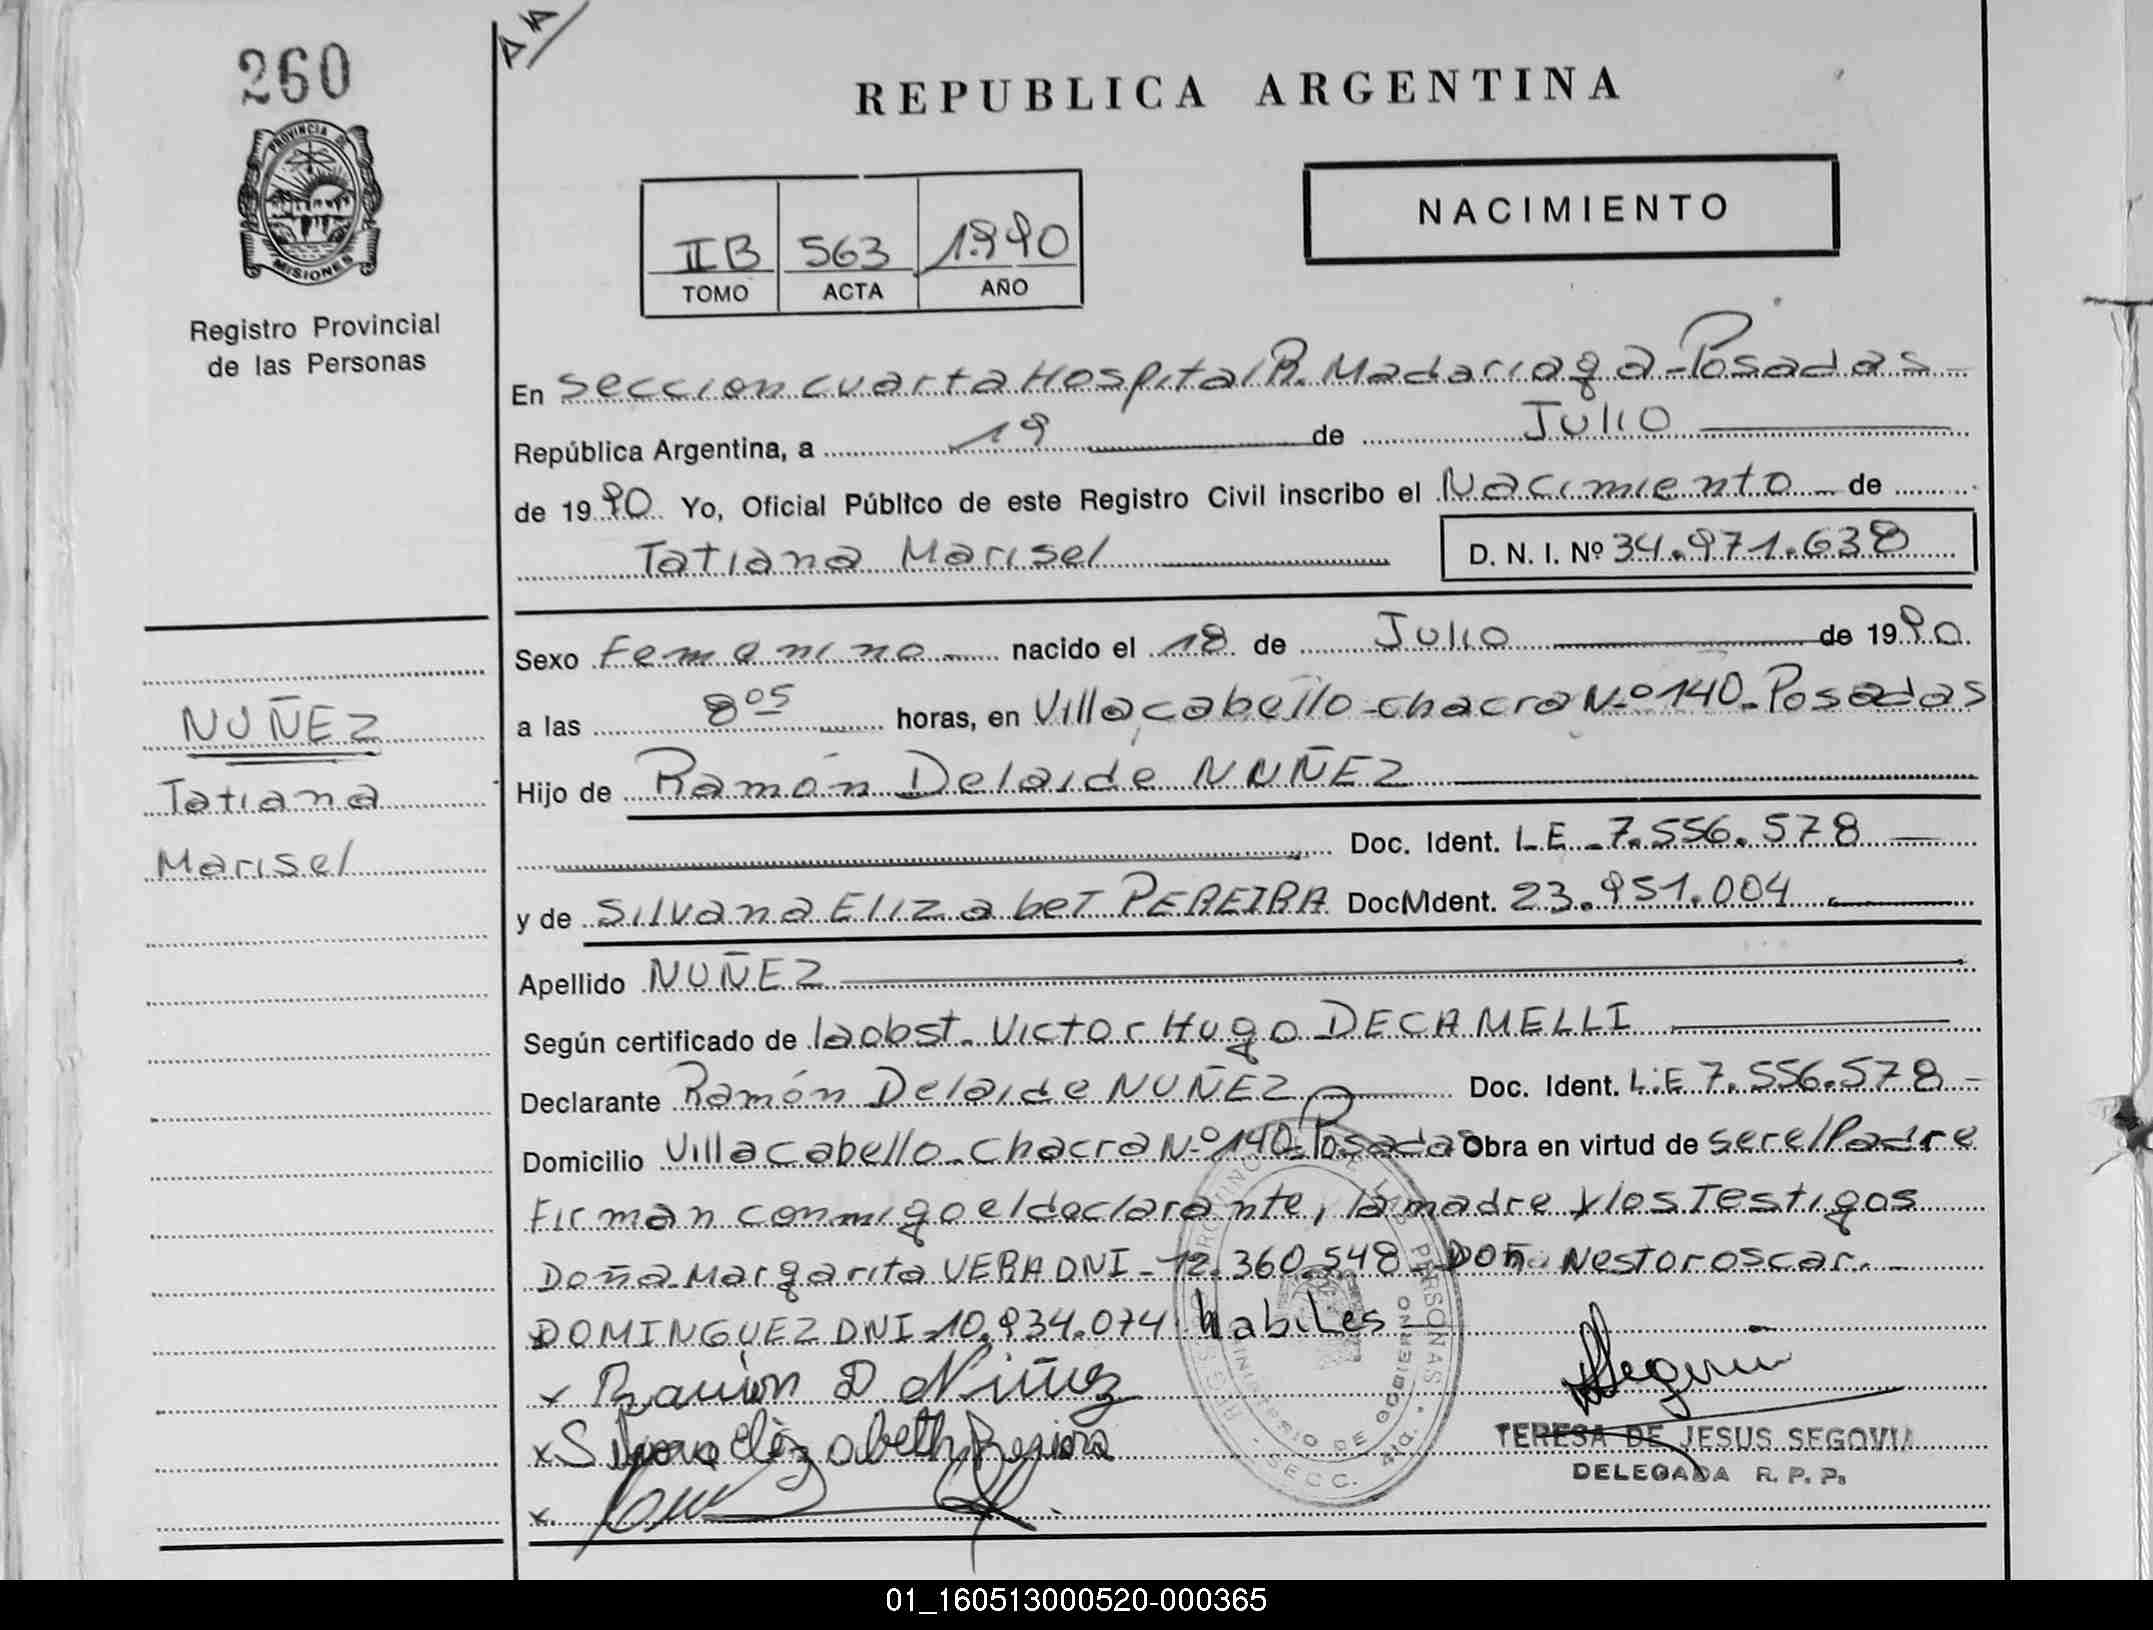 260
REPUBLICA ARGENTINA
PROVINCIA DE
MISIONES
Registro Provincial
de las Personas
IIB 563 1.990
TOMO ACTA AÑO
NACIMIENTO
En seccion cuarta Hospital R. Madariaga - Posadas
República Argentina, a 19 de Julio
de 1990 Yo, Oficial Público de este Registro Civil inscribo el Nacimiento de
Tatiana Marisel D. N. I. Nº 34.971.638
Sexo Femenino nacido el 18 de Julio de 1990.
a las 8 05 horas, en Villa cabello - chacra Nº 140 - Posadas
Hijo de Ramón Delaide NUÑEZ
Doc. Ident. L.E. 7.556.578
y de Silvana Elizabet PEREIRA Doc. Ident. 23.951.004
Apellido NUÑEZ
Según certificado de la obst. Victor Hugo DECAMELLI
Declarante Ramón Delaide NUÑEZ Doc. Ident. L.E 7.556.578
Domicilio Villa cabello - Chacra Nº 140 - Posadas Obra en virtud de ser el Padre
Firman conmigo el declarante, la madre y los Testigos
Doña Margarita VERA DNI - 12.360.548 - Don Nestor oscar
DOMINGUEZ DNI - 10.934.074 habiles
x Ramón D Núñez
x Silvana Elizabeth Pereira
x
Segovia
TERESA DE JESUS SEGOVIA
DELEGADA R. P. P.
NUÑEZ
Tatiana
Marisel
PERSONAS
MINISTERIO DE GOBIERNO
SECC. 4ta.
01_160513000520-000365